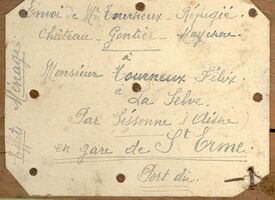 Envoi de Mr Tourneux Réfugié.
Château-Gontier - Mayenne
à
Monsieur Tourneux Félix.
à
La Selve.
Par Sissonne (Aisne)
en gare de St Erme.
Port du.
Effets Ménagers